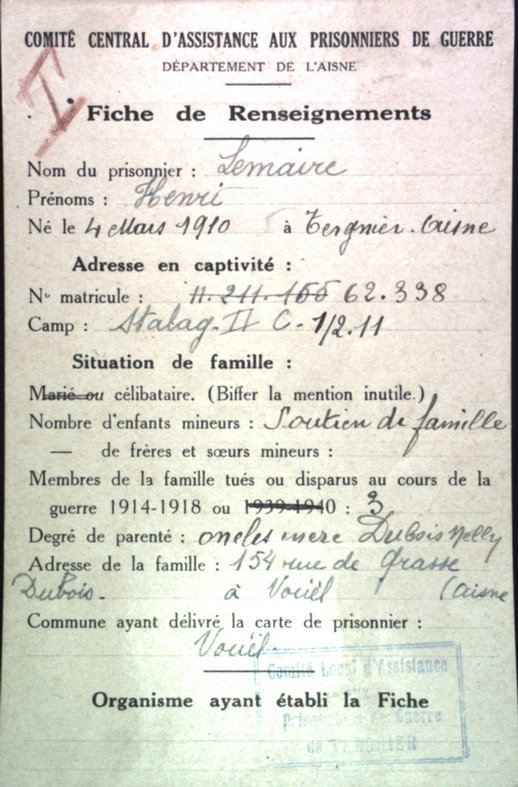 COMITÉ CENTRAL D'ASSISTANCE AUX PRISONNIERS DE GUERRE
DÉPARTEMENT DE L'AISNE
I
Fiche de Renseignements
Nom du prisonnier : Lemaire
Prénoms : Henri
Né le 4 Mars 1910 à Tergnier. Aisne
Adresse en captivité :
No matricule : 11.211.155 62.338
Camp : Stalag-II C-1/2.11
Situation de famille :
Marié ou célibataire. (Biffer la mention inutile.)
Nombre d'enfants mineurs : Soutien de famille
— de frères et sœurs mineurs :
Membres de la famille tués ou disparus au cours de la
guerre 1914-1918 ou 1939-1940 : 3
Degré de parenté : oncles mere Dubois Nelly
Adresse de la famille : 154 rue de Grasse
Dubois- à Vouël (Aisne
Commune ayant délivré la carte de prisonnier :
Vouël-
Comité Local d'Assistance
aux
Prisonniers de Guerre
de TERGNIER
Organisme ayant établi la Fiche